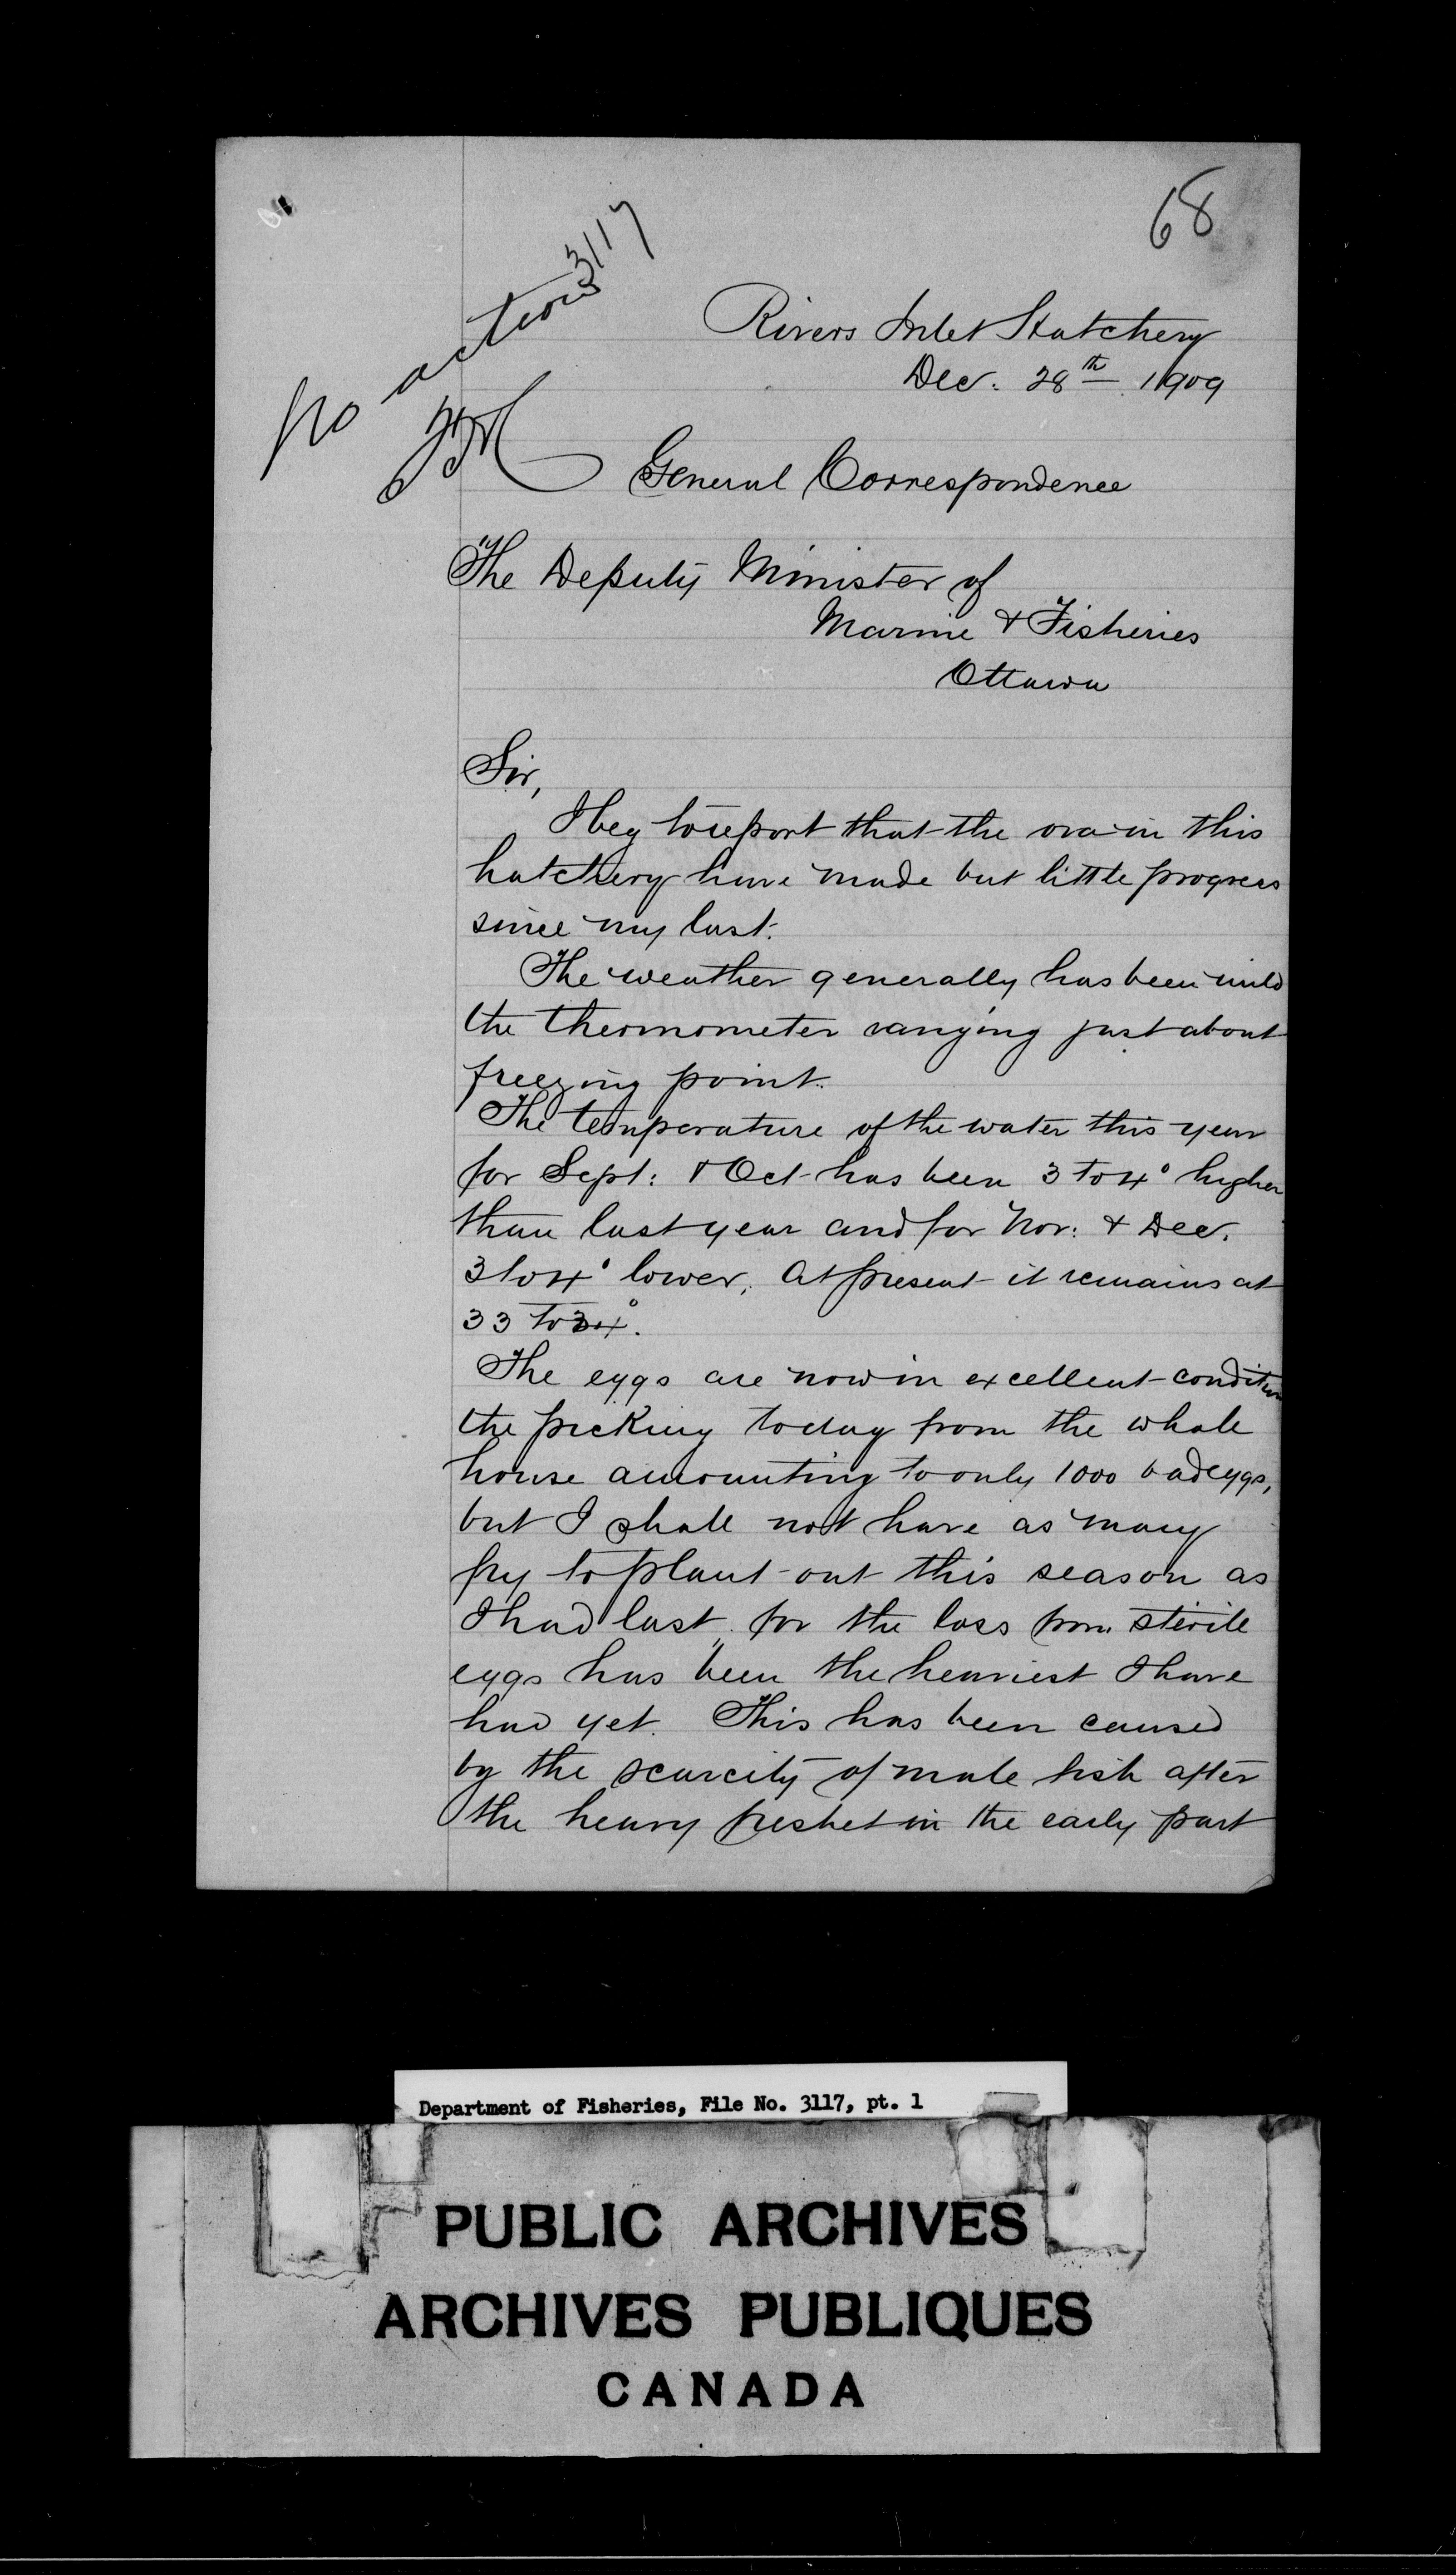 68
3117
No action
Rivers Inlet Hatchery
Dec. 28th 1909
General Correspondence
The Deputy Minister of
Marine & Fisheries
Ottawa
Sir,
I beg to report that the ova in this
hatchery have made but little progress
since my last.
The weather generally has been mild
the thermometer ranging just about
freezing point.
The temperature of the water this year
for Sept: & Oct has been 3 to 4° higher
than last year and for Nov: & Dec.
3 to 4° lower. At present it remains at
33 to 34°.
The eggs are now in excellent condition
the picking today from the whole
house amounting to only 1000 bad eggs,
but I shall not have as many
fry to plant out this season as
I had last, for the loss from sterile
eggs has been the heaviest I have
had yet. This has been caused
by the scarcity of male fish after
the heavy freshet in the early part
Department of Fisheries, File No. 3117, pt. 1
PUBLIC ARCHIVES
ARCHIVES PUBLIQUES
CANADA